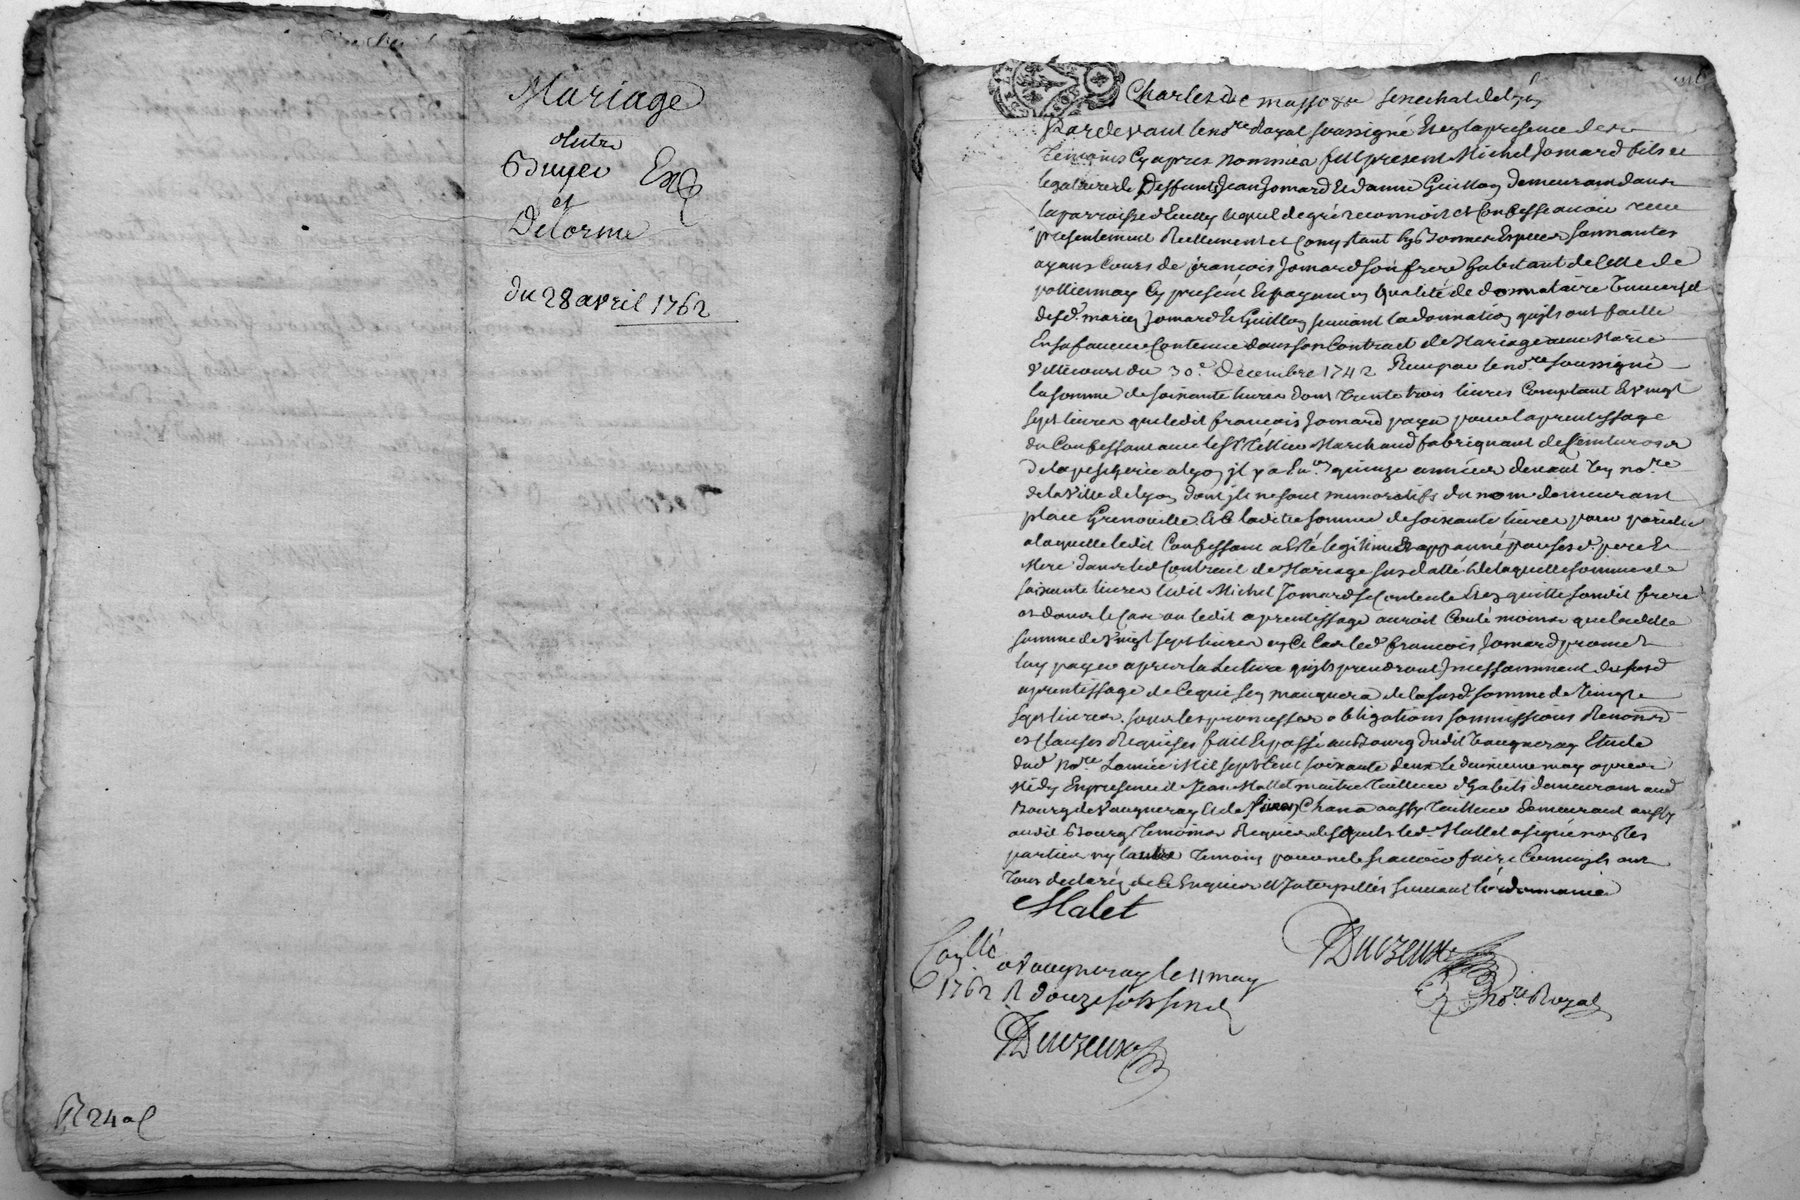 Mariage
Entre
Bruyer Exp
et
Delorme
du 28 avril 1762
R 24 s
Charles De massozo senechal de lyon
Pardevant le no.re Royal soussigné Et en la presence des
Temoins Cy apres nommées fut present Michel Jomard fils et
legataire de Deffunts Jean Jomard Et danne Guillon demeurant dans
la parroisse lequel de gré reconnoit et Confesse avoir receu
presentement Reellement et Comptant En bonnes Especes sonnantes
ayans Cours de françois Jomard son frere habitant de Celle de
pollionnay Cy present Et payant en qualité de donnataire Universel
desd. mariez Jomard Et Guillon suivant la donnation quils ont faitte
En sa faveur Contenue dans son Contract de Mariage avec Marie
Villecourt du 30.e Décembre 1742 Receu par le no.re soussigné
la somme de soixante livres dont trente trois livres Comptant Et vingt
sept livres que ledit françois Jomard paya pour laprentissage
du Confessant avec le Sr Marchand fabriquant de Ceintures
de la pescherie a lyon il y a Env.on quinze années devant un no.re
de la Ville de lyon dont ils ne sont memoratifs du nom demeurant
place Grenouille Et Est ladite somme de soixante livres pour pareille
a laquelle ledit Confessant a Esté legitimé Et appanné par sesd. pere Et
Mere dans led Contract de Mariage susdatté de laquelle somme de
soixante livres ledit Michel Jomard se Contente Et en quitte sondit frere
et dans le Cas ou ledit aprentissage auroit Couté moins que ladite
somme de vingt sept livres en Ce Cas led. françois Jomard promet
luy payer apres la Lecture quils prendront Incessamment dususd
aprentissage de Ce qui sen manquera de lasusd. somme de vingt
sept livres. sous les promesses obligations soumissions Renon.ons
et Clauses Requises fait Et passé au Bourg dudit Vaugneray Etude
dud no.re L'année Mil sept Cent soixante deux le deuxieme may apres
Midy En presence de Jean Mallet maitre Tailleur d'habits demeurant aud
Bourg de Vaugneray Et de Chana aussy Tailleur demeurant aussy
audit Bourg Temoins Requis desquels led. Mallet a signé non les
parties ny lautre Temoin pour ne le scavoir faire Comme ils ont
Tous declaré de Ce Enquis Et Interpellés suivant l'ordonnance
Malet
Duczeux
no.re Royal
Conllé a Vaugneray le 11 may
1762 R douze sols six d
Duczeux